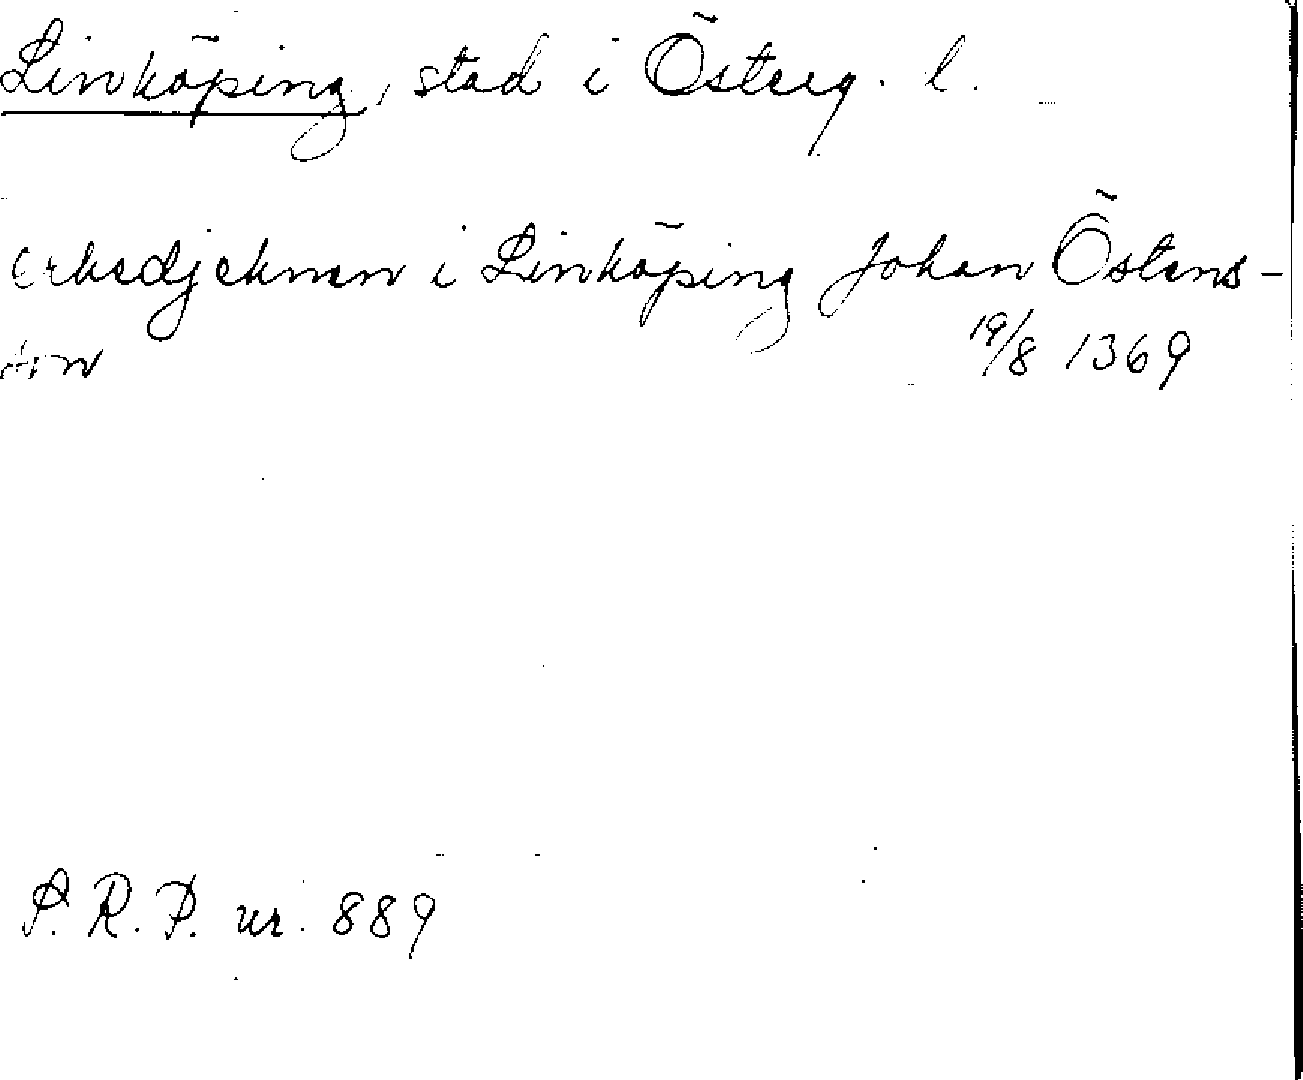 Linköping, stad i Österg. l.
erksdjekmen i Linköping Johan Östens-
son 19/8 1369
P. R. P. nr. 889